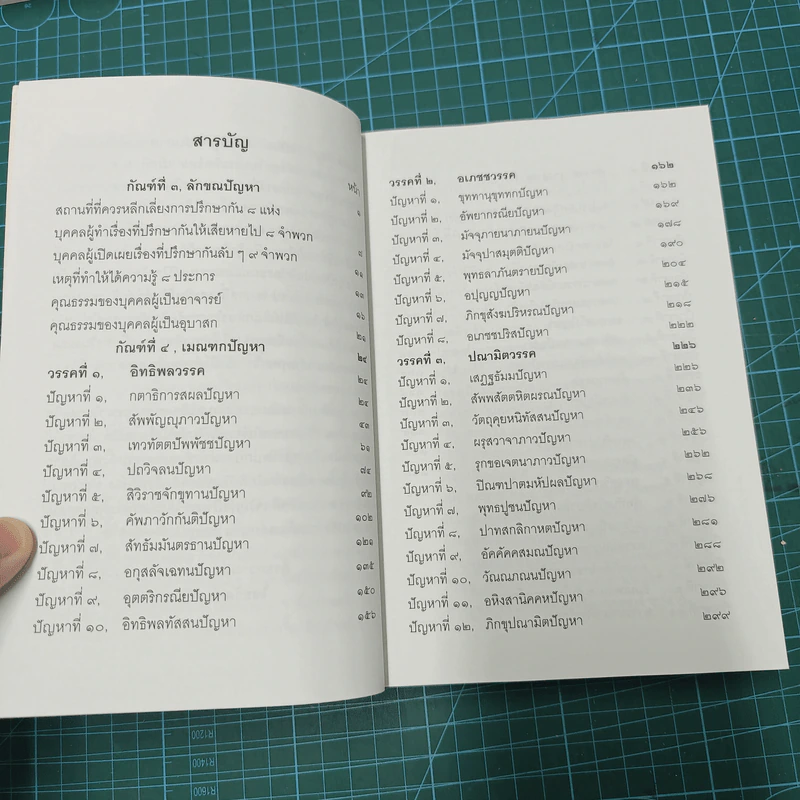 สารบัญ
กัณฑ์ที่ ๓, ลักขณปัญหา หน้า
สถานที่ที่ควรหลีกเลี่ยงการปรึกษากัน ๘ แห่ง ๑
บุคคลผู้ทำเรื่องที่ปรึกษากันให้เสียหายไป ๘ จำพวก
บุคคลผู้เปิดเผยเรื่องที่ปรึกษากันลับ ๆ ๙ จำพวก
เหตุที่ทำให้ได้ความรู้ ๘ ประการ ๑๑
คุณธรรมของบุคคลผู้เป็นอาจารย์
คุณธรรมของบุคคลผู้เป็นอุบาสก ๑๖
กัณฑ์ที่ ๔ , เมณฑกปัญหา ๒๑
วรรคที่ ๑, อิทธิพลวรรค ๒๔
ปัญหาที่ ๑, กตาธิการสผลปัญหา ๒๔
ปัญหาที่ ๒, สัพพัญญุภาวปัญหา ๔๓
ปัญหาที่ ๓, เทวทัตตปัพพัชชปัญหา ๖๑
ปัญหาที่ ๔, ปถวิจลนปัญหา ๗๔
ปัญหาที่ ๕, สิวิราชจักขุทานปัญหา ๙๒
ปัญหาที่ ๖, คัพภาวักกันติปัญหา ๑๐๒
ปัญหาที่ ๗, สัทธัมมันตรธานปัญหา ๑๒๑
ปัญหาที่ ๘, อกุสลัจเฉทนปัญหา ๑๓๕
ปัญหาที่ ๙, อุตตริกรณียปัญหา ๑๕๐
ปัญหาที่ ๑๐, อิทธิพลทัสสนปัญหา ๑๕๖
วรรคที่ ๒, อเภชชวรรค ๑๖๒
ปัญหาที่ ๑, ขุททานุขุททกปัญหา ๑๖๒
ปัญหาที่ ๒, อัพยากรณียปัญหา ๑๖๙
ปัญหาที่ ๓, มัจจุภายนาภายนปัญหา ๑๗๘
ปัญหาที่ ๔, มัจจุปาสมุตติปัญหา ๑๙๐
ปัญหาที่ ๕, พุทธลาภันตรายปัญหา ๒๐๔
ปัญหาที่ ๖, อปุญญปัญหา ๒๑๕
ปัญหาที่ ๗, ภิกขุสังฆปริหรณปัญหา ๒๑๘
ปัญหาที่ ๘, อเภชชปริสปัญหา ๒๒๒
วรรคที่ ๓, ปณามิตวรรค ๒๒๖
ปัญหาที่ ๑, เสฏฐธัมมปัญหา ๒๒๖
ปัญหาที่ ๒, สัพพสัตตหิตผรณปัญหา ๒๓๖
ปัญหาที่ ๓, วัตถุคุยหนิทัสสนปัญหา ๒๔๖
ปัญหาที่ ๔, ผรุสวาจาภาวปัญหา ๒๕๖
ปัญหาที่ ๕, รุกขอเจตนาภาวปัญหา ๒๖๒
ปัญหาที่ ๖, ปิณฑปาตมหัปผลปัญหา ๒๖๘
ปัญหาที่ ๗, พุทธปูชนปัญหา ๒๗๖
ปัญหาที่ ๘, ปาทสกลิกาหตปัญหา ๒๘๑
ปัญหาที่ ๙, อัคคัคคสมณปัญหา ๒๘๘
ปัญหาที่ ๑๐, วัณณภณนปัญหา ๒๙๒
ปัญหาที่ ๑๑, อหิงสานิคคหปัญหา ๒๙๖
ปัญหาที่ ๑๒, ภิกขุปณามิตปัญหา ๒๙๙
R1200
R1400
R1600